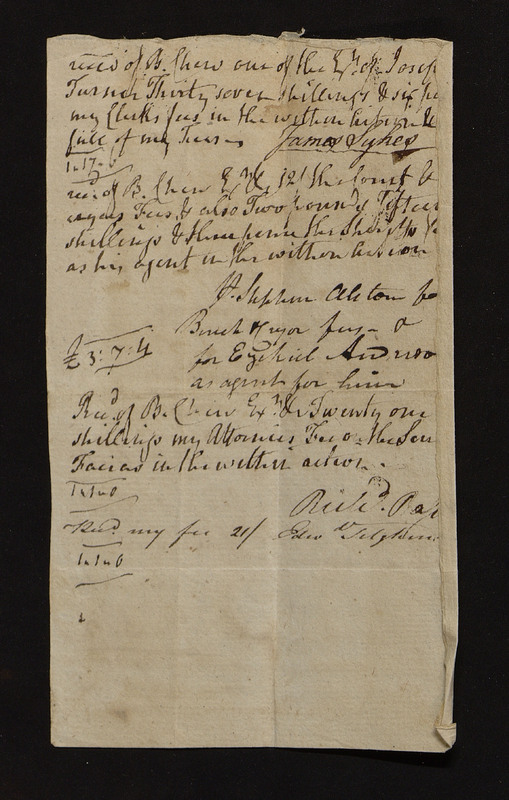 rec'd of B. Chew one of the Ex.rs of Josep
Turner Thirty seven shillings & six pe
my Clerks fees in the within action &
full of my Fees
James Sykes
1 17 6
rec.d of B. Chew Ex.r &c 12/ the Court
cryers Fees & also Two pounds Fifteen
shillings & the Sheriffs
as his agent in the within action
Stephen Alston fo
£ 3: 7: 4
cryor fees &
for Ezekiel
as agent for him
Rec.d of B. Chew Ex.r &c Twenty one
shillings my Attornies Fee o the Scire
Facias in the within action.
1 1 0
Rich.d
Rec.d my fee 21/ Edw.d Tilghman
1 1 0